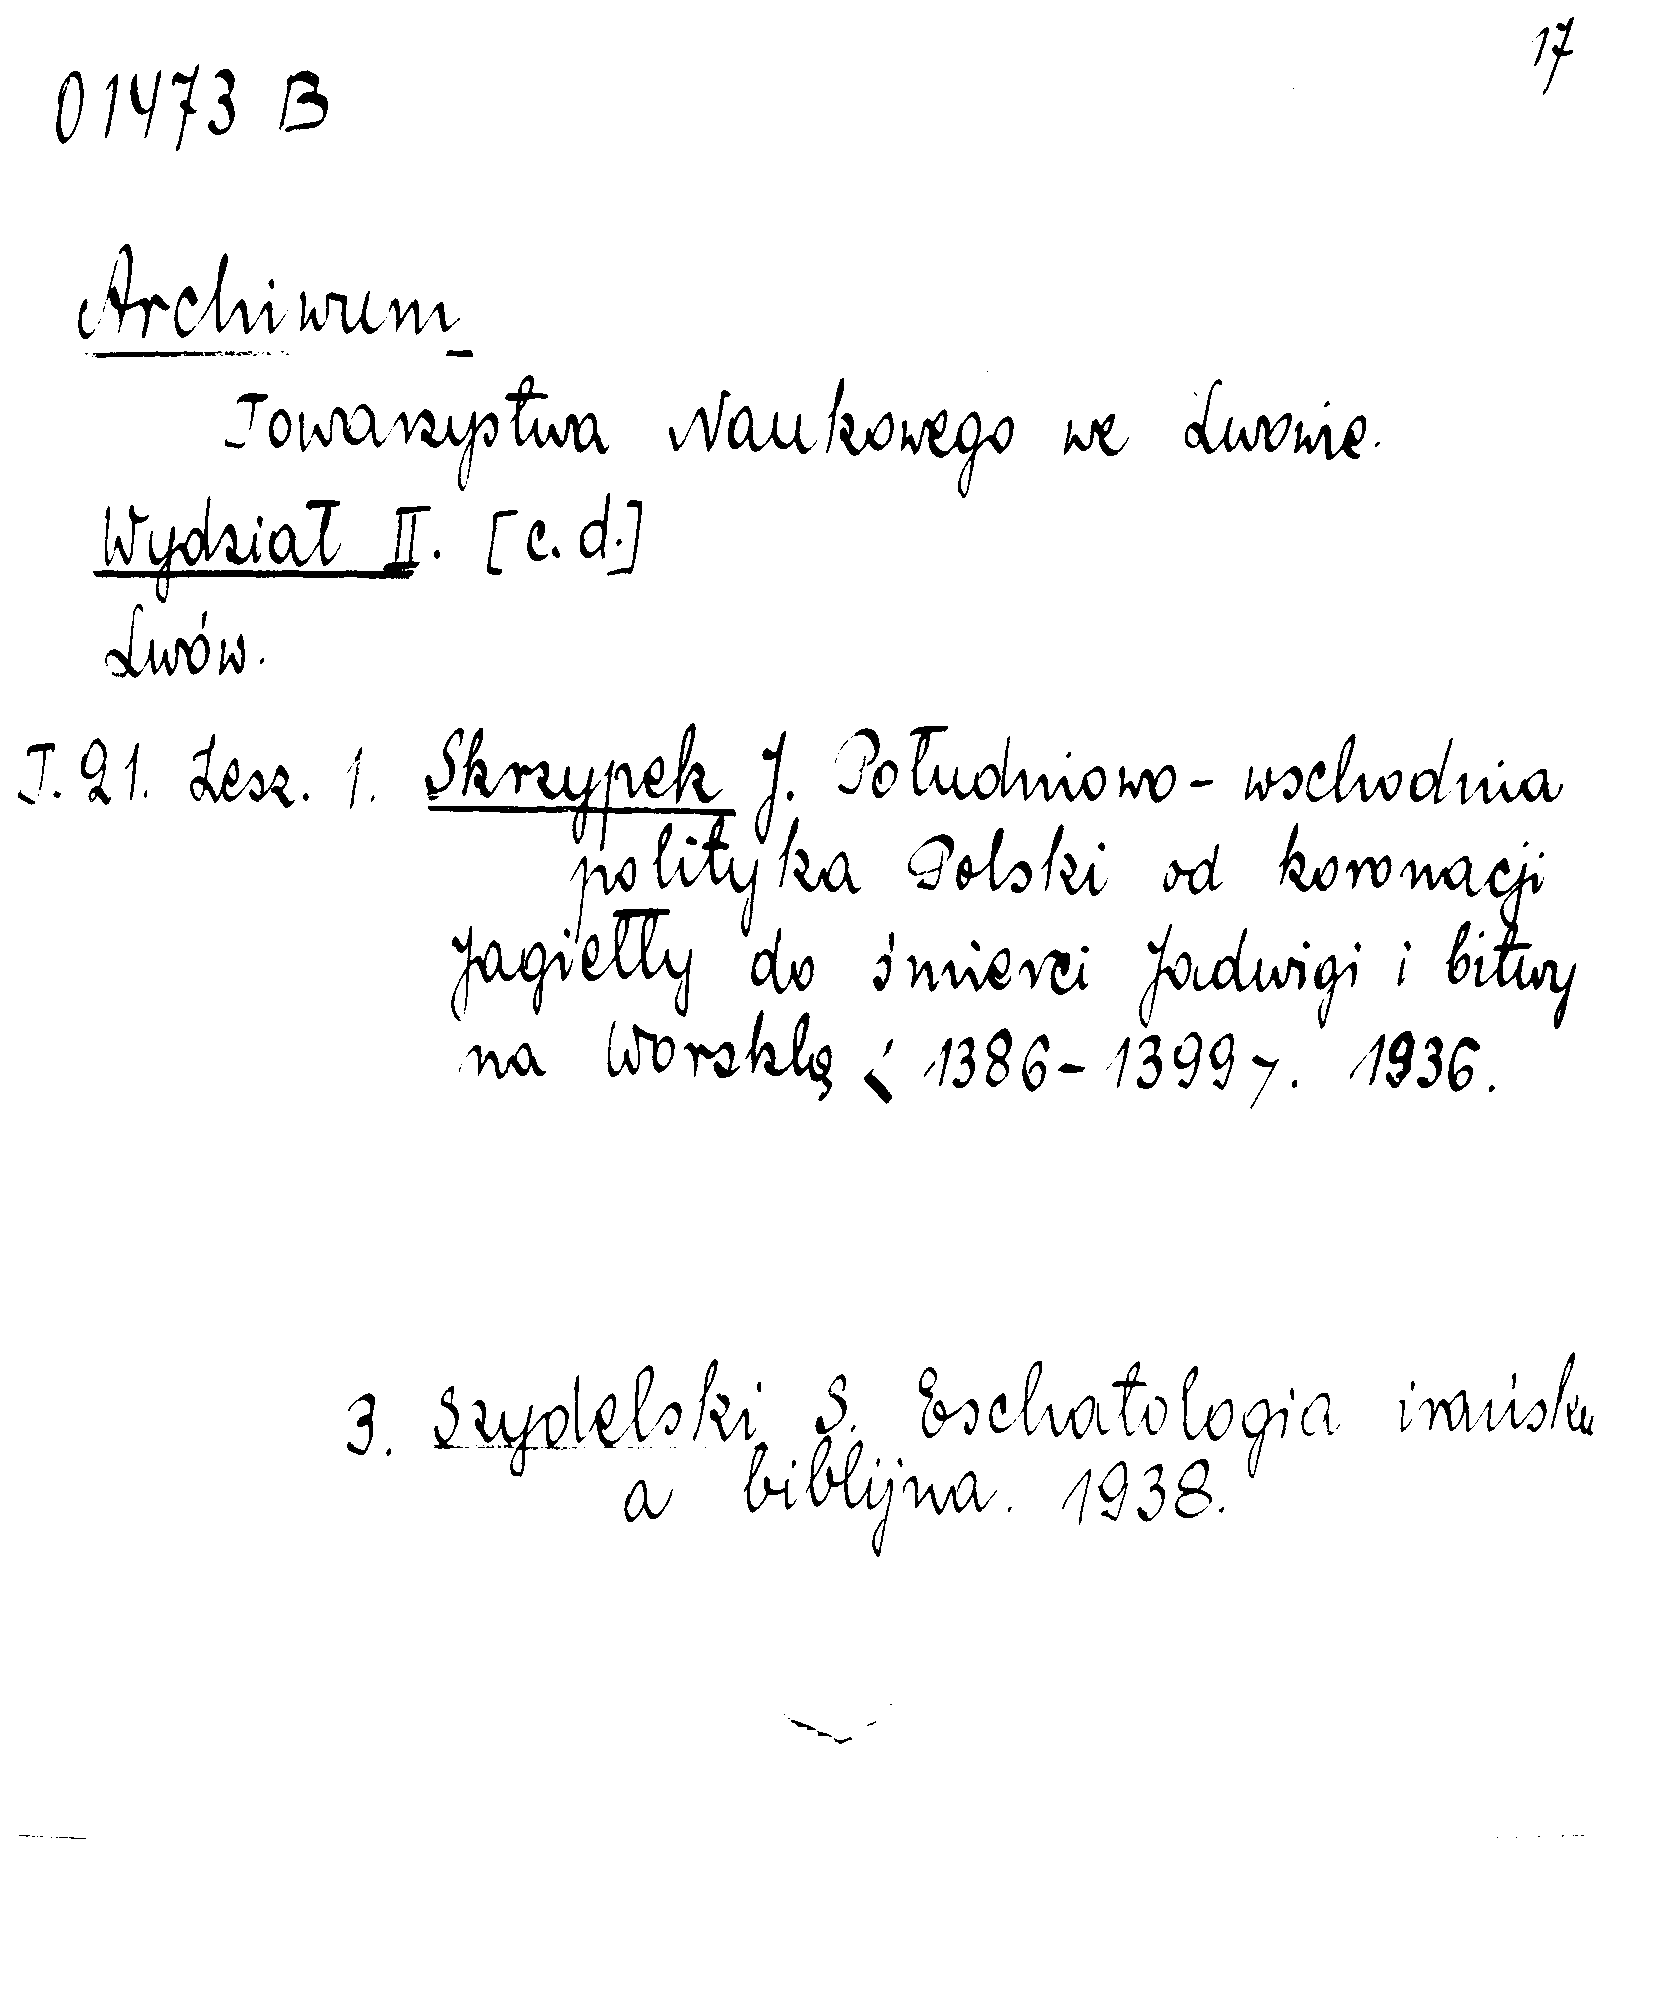 17
01473 B
Archiwum
Towarzystwa Naukowego we Lwowie.
Wydział II. [c.d.]
Lwów.
T.21. Zesz. 1. Skrzypek J. Południowo-wschodnia
polityka Polski od koronacji
Jagiełły do śmierci Jadwigi i bitwy
na Worsklą < 1386-1399 >. 1936.
3. Szydelski S. Eschatologia irańska
a biblijna. 1938.